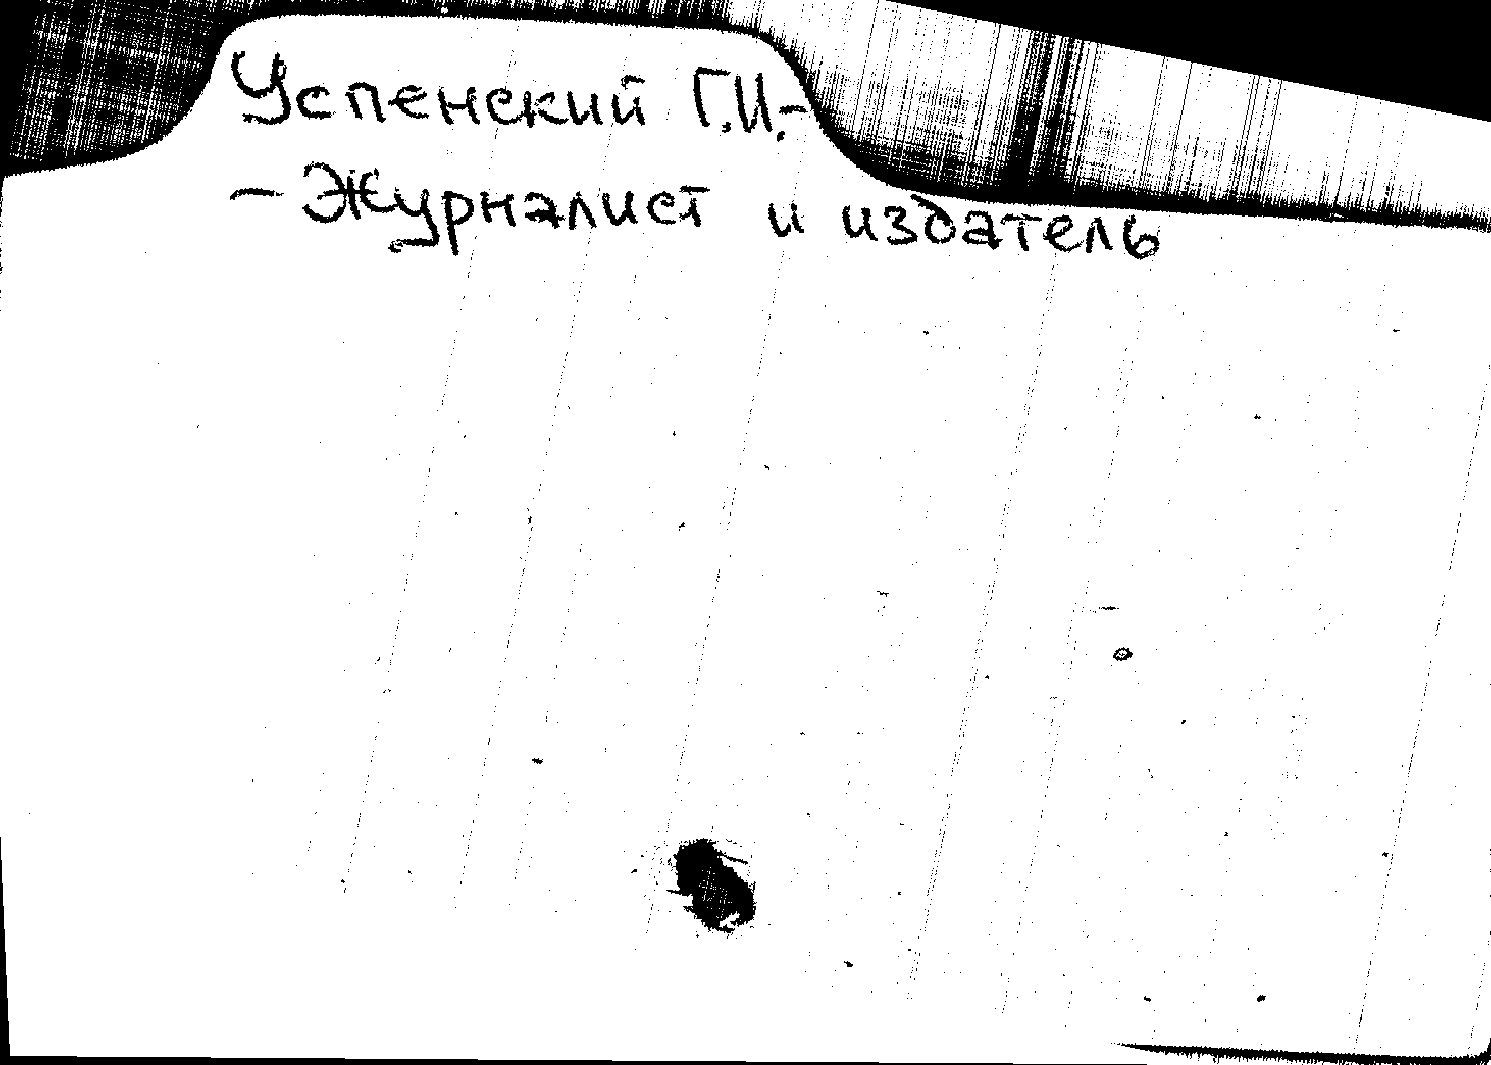 Успенский Г.И.-
- Журналист и издатель